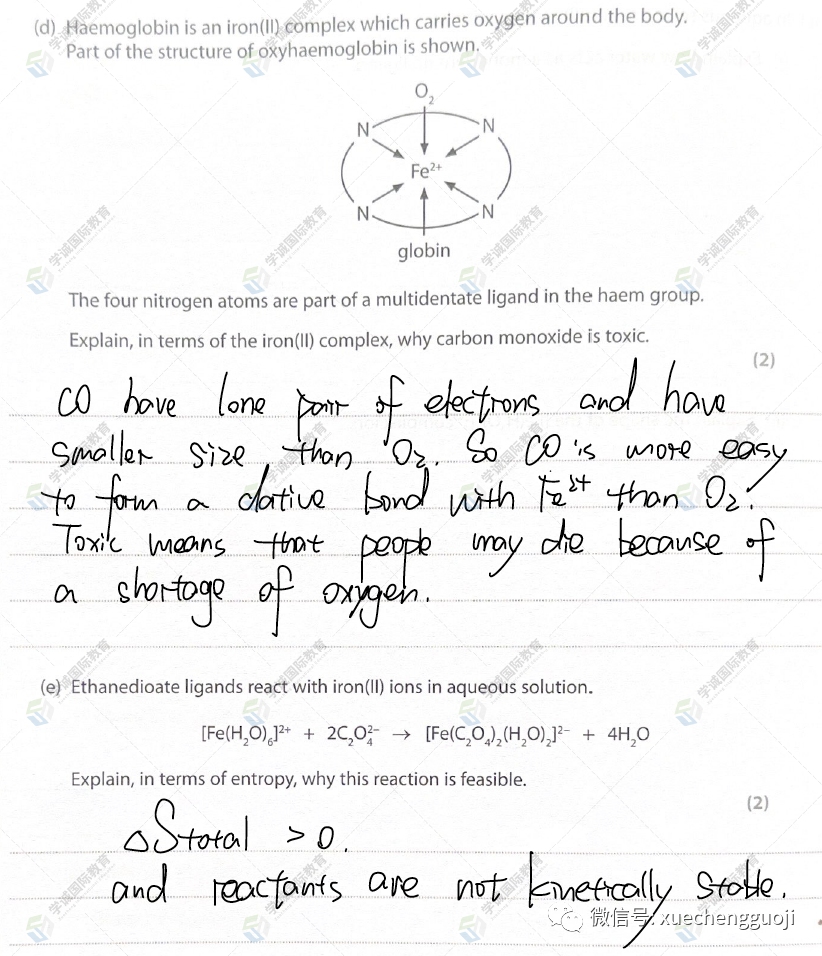 (d) Haemoglobin is an iron(II) complex which carries oxygen around the body.
Part of the structure of oxyhaemoglobin is shown.
O₂
N N
Fe²⁺
N N
globin
The four nitrogen atoms are part of a multidentate ligand in the haem group.
Explain, in terms of the iron(II) complex, why carbon monoxide is toxic.
(2)
CO have lone pair of electrons and have
smaller size than O₂. So CO is more easy
to form a dative bond with Fe²⁺ than O₂.
Toxic means that people may die because of
a shortage of oxygen.
(e) Ethanedioate ligands react with iron(II) ions in aqueous solution.
[Fe(H₂O)₆]²⁺ + 2C₂O₄²⁻ → [Fe(C₂O₄)₂(H₂O)₂]²⁻ + 4H₂O
Explain, in terms of entropy, why this reaction is feasible.
(2)
△Stotal > 0.
and reactants are not kinetically stable.
微信号: xuechengguoji
学诚国际教育